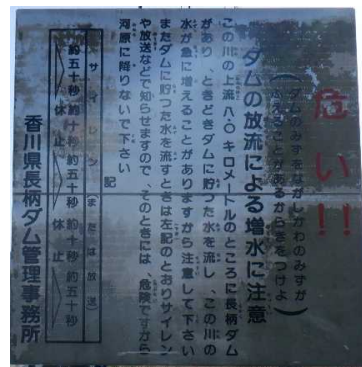 危い!!
(ダムのみずをながしかわのみずが
ふえることがあるからきをつけよ)
ダムの放流による増水に注意
この川の上流八・〇キロメートルのところに長柄ダム
があり、ときどきダムに貯つた水を流し、この川の
水が急に増えることがありますから注意して下さい
またダムに貯つた水を流すときは左記のとおりサイレン
や放送などで知らせますので、そのときには、危険ですから
河原に降りないで下さい
記
サイレン(または放送)
約五十秒 約十秒 約五十秒 約十秒 約五十秒
休止 休止
香川県長柄ダム管理事務所